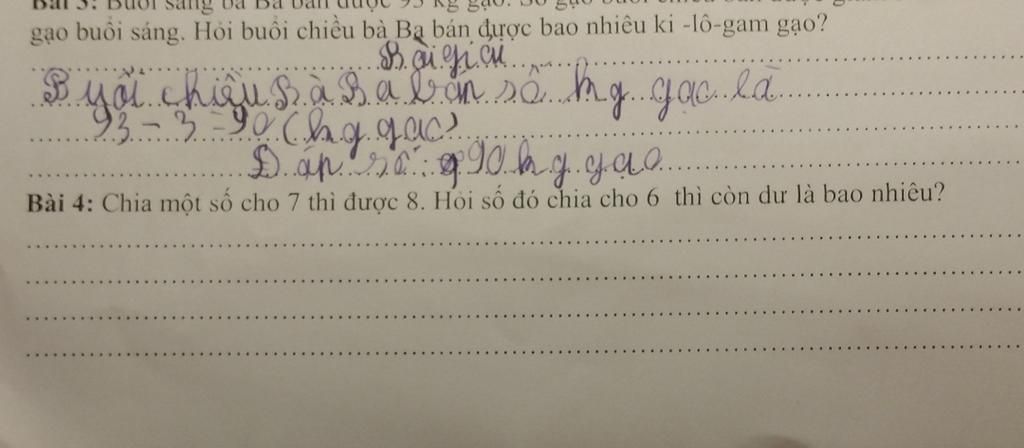 Bài 3: Buổi sáng bà Ba bán được 93 kg gạo. Số gạo buổi chiều bán được
gạo buổi sáng. Hỏi buổi chiều bà Ba bán được bao nhiêu ki -lô-gam gạo?
Bài giải
Buổi chiều Bà Ba bán số kg gạc là
93 - 3 = 90 (kg gạc)
Đán số: 90 kg gạo
Bài 4: Chia một số cho 7 thì được 8. Hỏi số đó chia cho 6 thì còn dư là bao nhiêu?